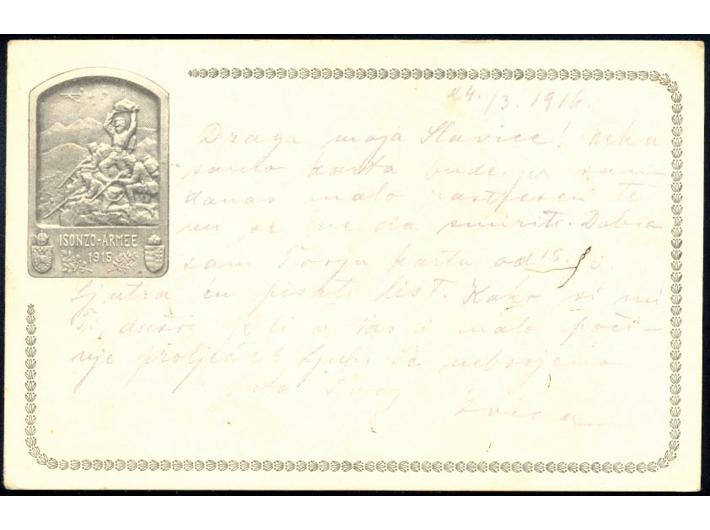 24./3. 1916.
Draga moja Slavice! Neka
samo karta bude, jer sam
danas malo rastresen te
mi se ne da smiriti. Dobio
sam Tvoju kartu od 15./3.
ISONZO-ARMEE
1915
Sjutra ću pisati list. Kako si mi
Ti, dušo, je li u Vas i malo poči-
nje proljeće? Ljubi Te nebrojeno
puta Tvoj
Ivica